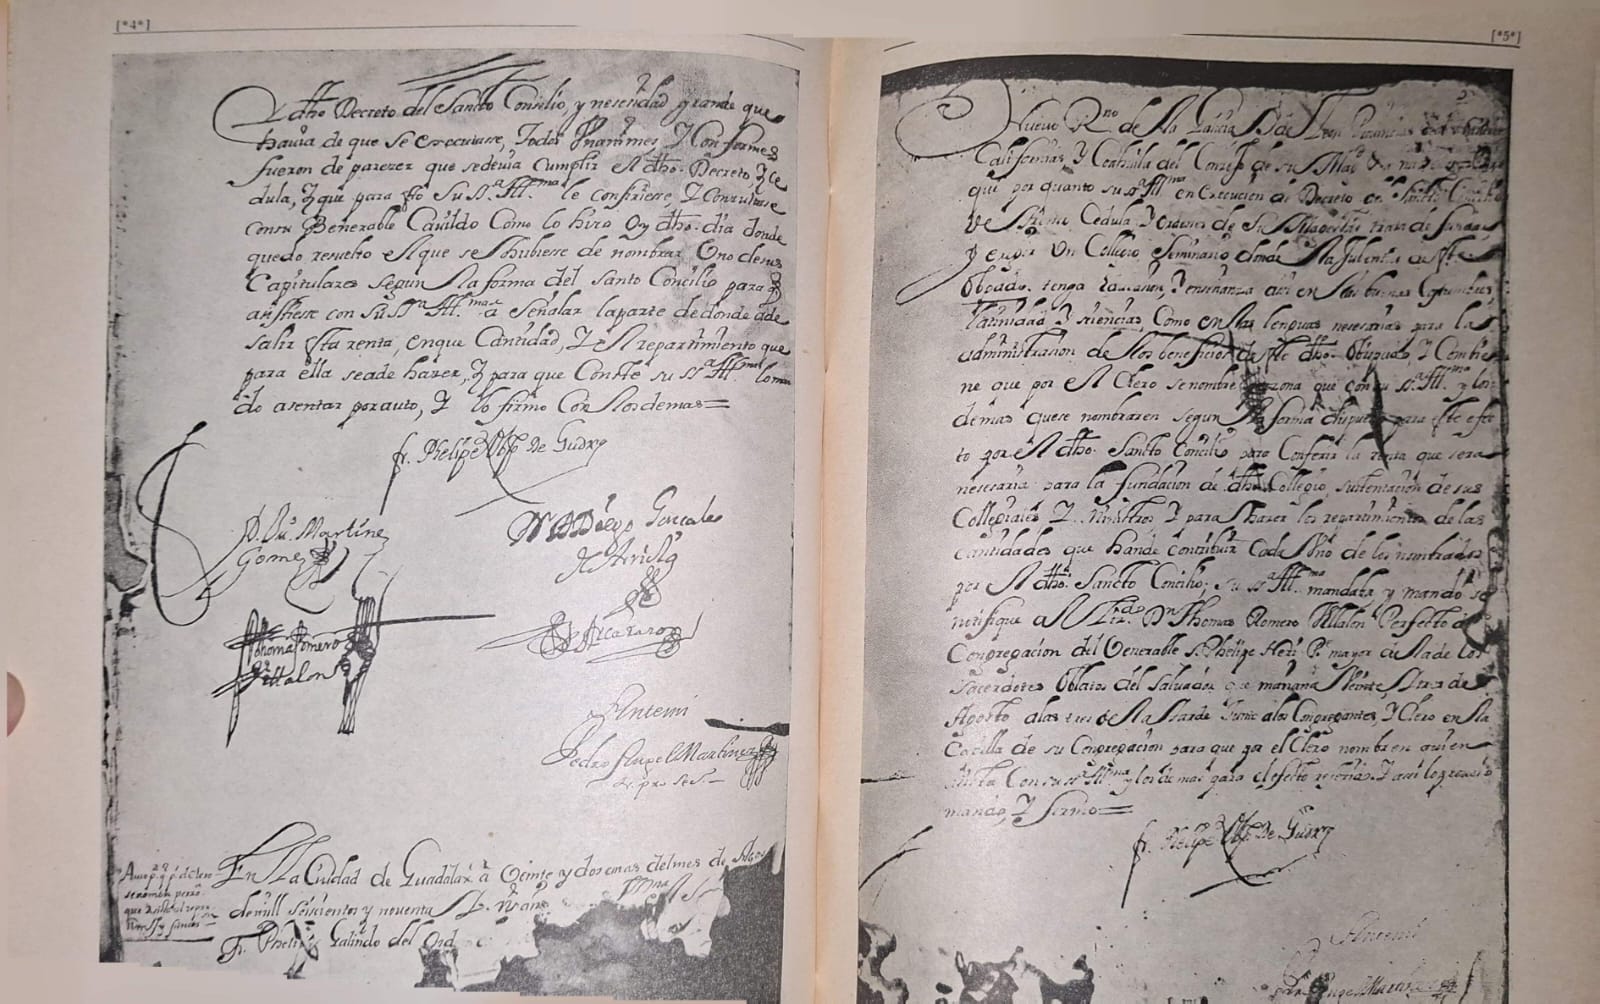 [*4*]
Y dho. Decreto del Sancto Consilio, y neseçidad grande que
havia de que se executasse, Todos Vnanimes, Y Conformes
fueron de parezer que sedevia Cumplir el dho. Decreto, Y Ce
dula, Y que para ello Su Sª. Illma le confiriese, Y Consultase
con su Benerable Cavildo Como lo hiço Oy dho. dia donde
quedo resuelto el que se hubiese de nombrar Uno desus
Capitulares segun la forma del Santo Concilio para q
asistiese con su Sª Illma. a señalar laparte dedonde ade
salir esta renta, enque Cantidad, Y el repartimiento que
para ella seade hazer, Y para que Conste su Sª Illma. loman
do asentar porauto, Y lo firmo Con losdemas=
fr. Phelipe Obpo de Guadxª
D. Juº. Martine
Gomez
Dr. D Diego Goncales
de
Thomas Romero
Villalon
Antemi
Pedro Angel Martinez
En La Ciudad de Guadalaxª à Veinte y dos emas delmes de Agos
demill Seiscientos y noventa
Fr. Phelipe Galindo del Ord
[*5*]
Nuevo Rno de la Galicia, de Leon Provincias
Californias, Y Coahuila del Consejo de su Magd
que por quanto su Sª Illma en execucion de Decreto del Sancto Concilio
de Cedula, Y ordenes de Su Magestad trata de fundar,
Y erigir Un Collegio Seminario donde la Jubentud deste
Obpado. tenga educasion, Y enseñanza asi en las buenas Costumbres,
latinidad Y siencias, Como en las lenguas nesesarias para la
administrasion de los beneficios deste dho. Obispado, Y Combie
ne que por el Clero senombre perzona que con su Sª. Illma. y los
demas quese nombraren segun la forma dispuesta para este efec
to por el dho. Sancto Concilio para Conferir la renta que sera
nesesaria para la fundacion de dho. Collegio, sustentacion de sus
Collegiales Y Ministros Y para hazer los repartimientos de las
Cantidades que hande Contribuir Cada Uno de los nombrados
por el dho. Sancto Concilio; su Sª Illma. mandaba y mando se
notifique al Dn Thomas Romero Villalon Perfecto de
Congregacion del Venerable S. Phelipe Neri P. mayor de la de los
Sacerdotes Oblatos del Salvador que mañana Veinte y tres de
Agosto alas tres de la tarde Junte alos Congregantes, Y Clero en la
Capilla de su Congregacion para que por el Clero nombren quien
asista Con su Sª Illma y los demas para el efecto referido. Y asi lo proveio
mando, Y firmo=
fr. Phelipe Obpo de Guadxª
Antemi